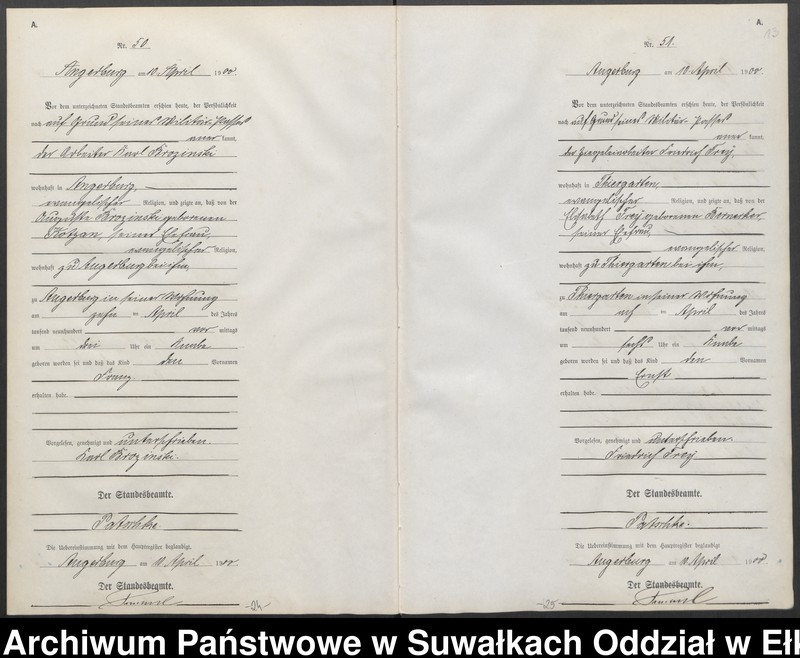 A.
Nr. 50.
Angerburg am 10 April 1900
Vor dem unterzeichneten Standesbeamten erschien heute, der Persönlichkeit
nach auf Grund seines Militär-Passes
aner kannt,
der Arbeiter Karl Brozinski
wohnhaft in Angerburg,
evangelischer Religion, und zeigte an, daß von der
Auguste Brozinski geborenen
Kotzan, seiner Ehefrau,
evangelischer Religion,
wohnhaft zu Angerburg bei ihm,
zu Angerburg in seiner Wohnung
am zehn ten April des Jahres
tausend neunhundert vor mittags
um drei Uhr ein Knabe
geboren worden sei und daß das Kind den Vornamen
Franz
erhalten habe.
Vorgelesen, genehmigt und unterschrieben.
Karl Brozinski.
Der Standesbeamte.
Patschke.
Die Uebereinstimmung mit dem Hauptregister beglaubigt.
Angerburg am 10 April 1900
Der Standesbeamte.
-24-
A.
13
Nr. 51.
Angerburg am 10 April 1900
Vor dem unterzeichneten Standesbeamten erschien heute, der Persönlichkeit
nach auf Grund seines Militär-Passes
aner kannt,
der Ziegeleiarbeiter Friedrich Frey,
wohnhaft in Thiergarten,
evangelischer Religion, und zeigte an, daß von der
Elisabeth Frey geborenen
seiner Ehefrau,
evangelischer Religion,
wohnhaft zu Thiergarten bei ihm,
zu Thiergarten in seiner Wohnung
am ten April des Jahres
tausend neunhundert vor mittags
um sechs Uhr ein Knabe
geboren worden sei und daß das Kind den Vornamen
Ernst
erhalten habe.
Vorgelesen, genehmigt und unterschrieben.
Friedrich Frey
Der Standesbeamte.
Patschke.
Die Uebereinstimmung mit dem Hauptregister beglaubigt
Angerburg am 10 April 1900
Der Standesbeamte.
-25-
Archiwum Państwowe w Suwałkach Oddział w Ełk